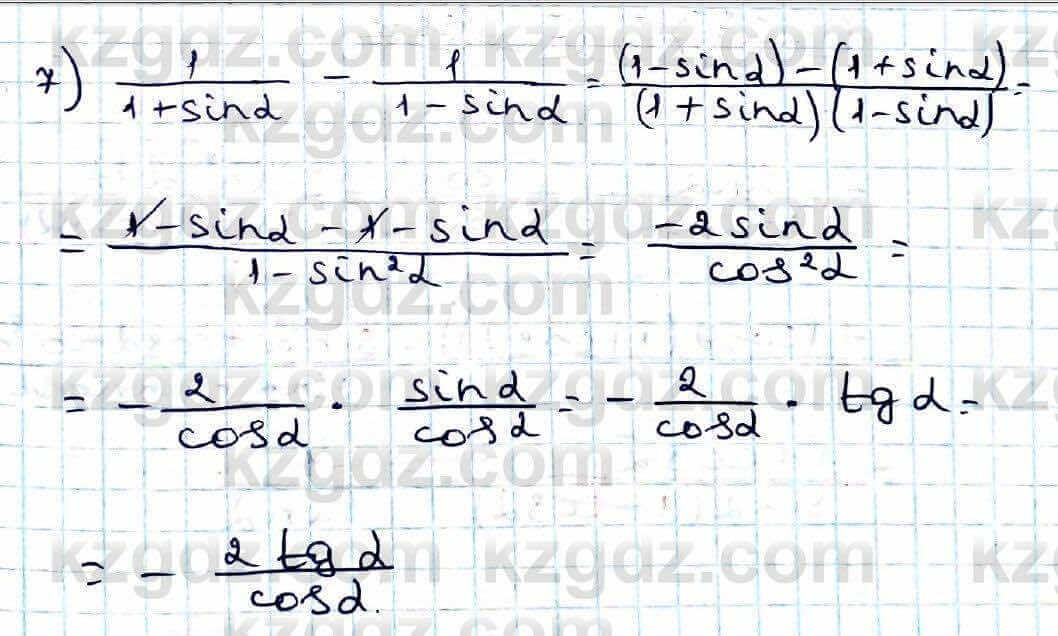 7) 1/(1+sinα) - 1/(1-sinα) = ((1-sinα)-(1+sinα))/((1+sinα)(1-sinα)) =
= (1-sinα-1-sinα)/(1-sin²α) = (-2sinα)/(cos²α) =
= - 2/cosα · sinα/cosα = - 2/cosα · tgα =
= - (2tgα)/(cosα).
kzgdz.com kzgdz.com kz
kzgdz.com
kzgdz.com kzgdz.com kz
kzgdz.com
kzgdz.com kzgdz.com kz
kzgdz.com
kzgdz.com kzgdz.com kz